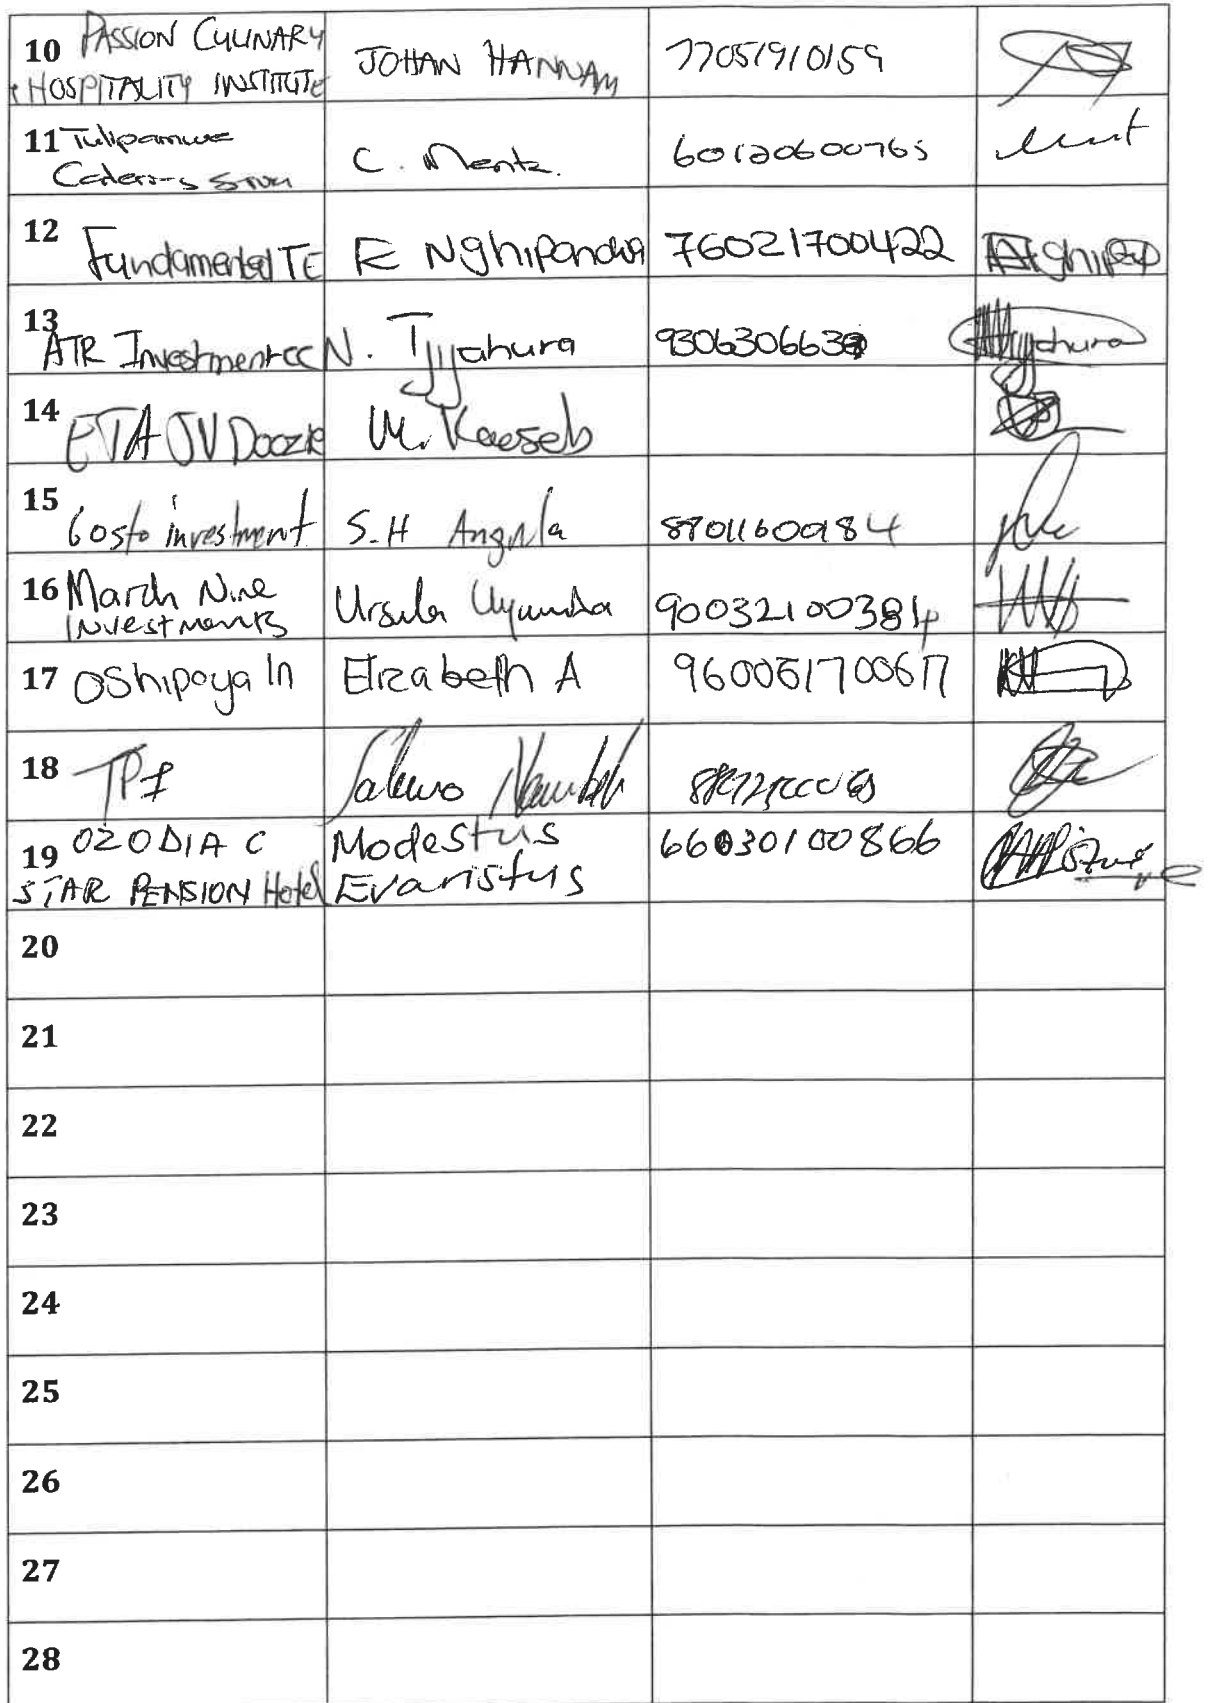 10 PASSION CULINARY
HOSPITALITY INSTITUTE JOHAN HANNAM 77051910159
11 Tulipamwe
C. Mentz. 60120600765
12 Fundamental TE E Nghipandwa 76021700422
13 ATR Investment cc N. Tjijahura 9306306630
14 ETA JV Doozie M. Kaeseb
15 Costo investment S.H Angula 88011600184
16 March Nine
Investments Ursula 90032100384
17 Oshipoya In Elizabeth A 96006170061
18 TPI
19 OZODIA C Modestus 66030100866
STAR PENSION Hotel Evaristus
20
21
22
23
24
25
26
27
28